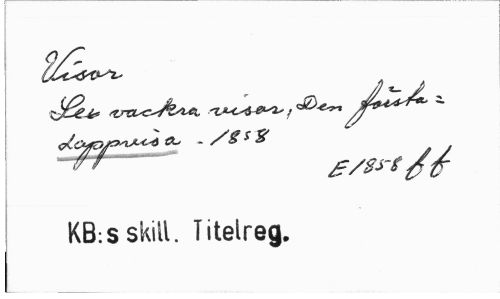 Visor
Sex vackra visor, Den första=
Lappvisa - 1858
E 1858 ff
KB:s skill. Titelreg.